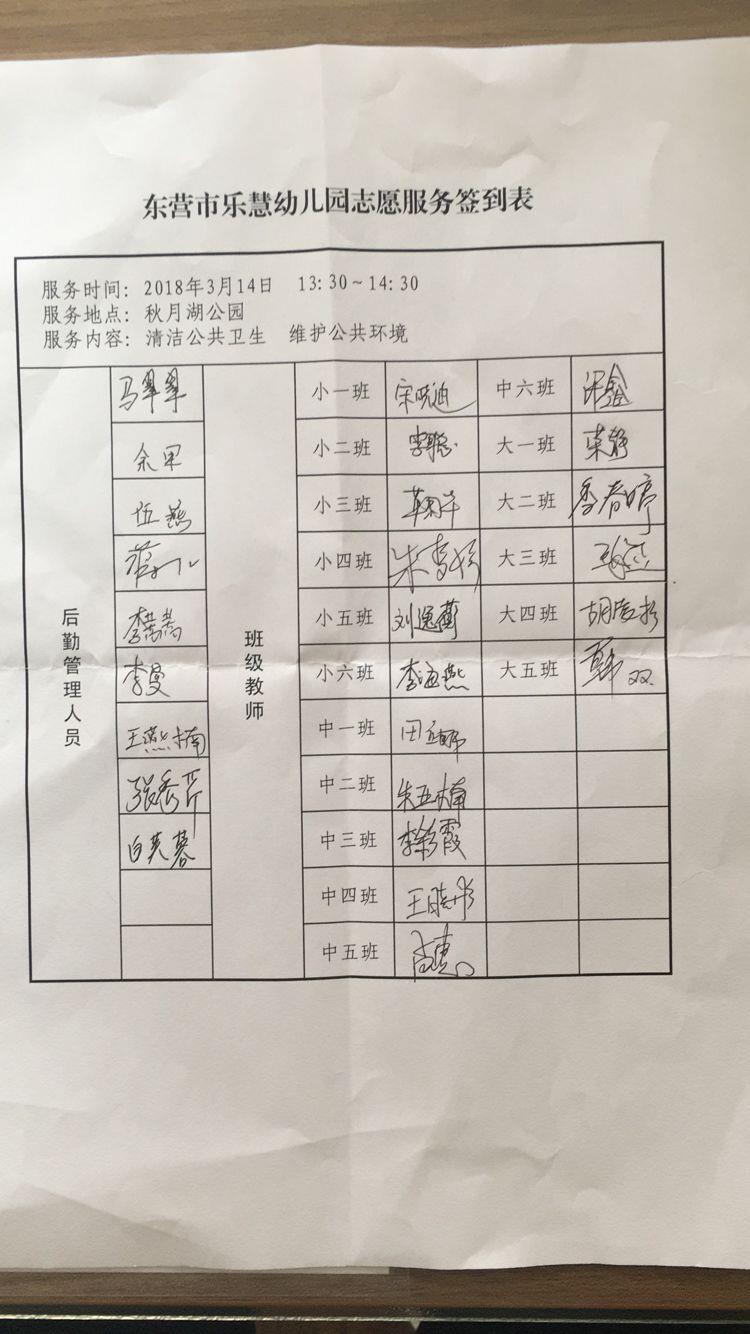 东营市乐慧幼儿园志愿服务签到表
服务时间：2018年3月14日 13:30～14:30
服务地点：秋月湖公园
服务内容：清洁公共卫生 维护公共环境
后勤管理人员
马翠翠
余果
伍燕
李曼
王燕楠
张秀芹
白芙蓉
班级教师
小一班 宋晓迪 中六班
小二班 李聪 大一班 荣静
小三班 大二班 季春婷
小四班 朱 大三班
小五班 刘 大四班
小六班 李海燕 大五班 韩双双
中一班 田
中二班 朱亚楠
中三班 李彩霞
中四班 王晓彤
中五班